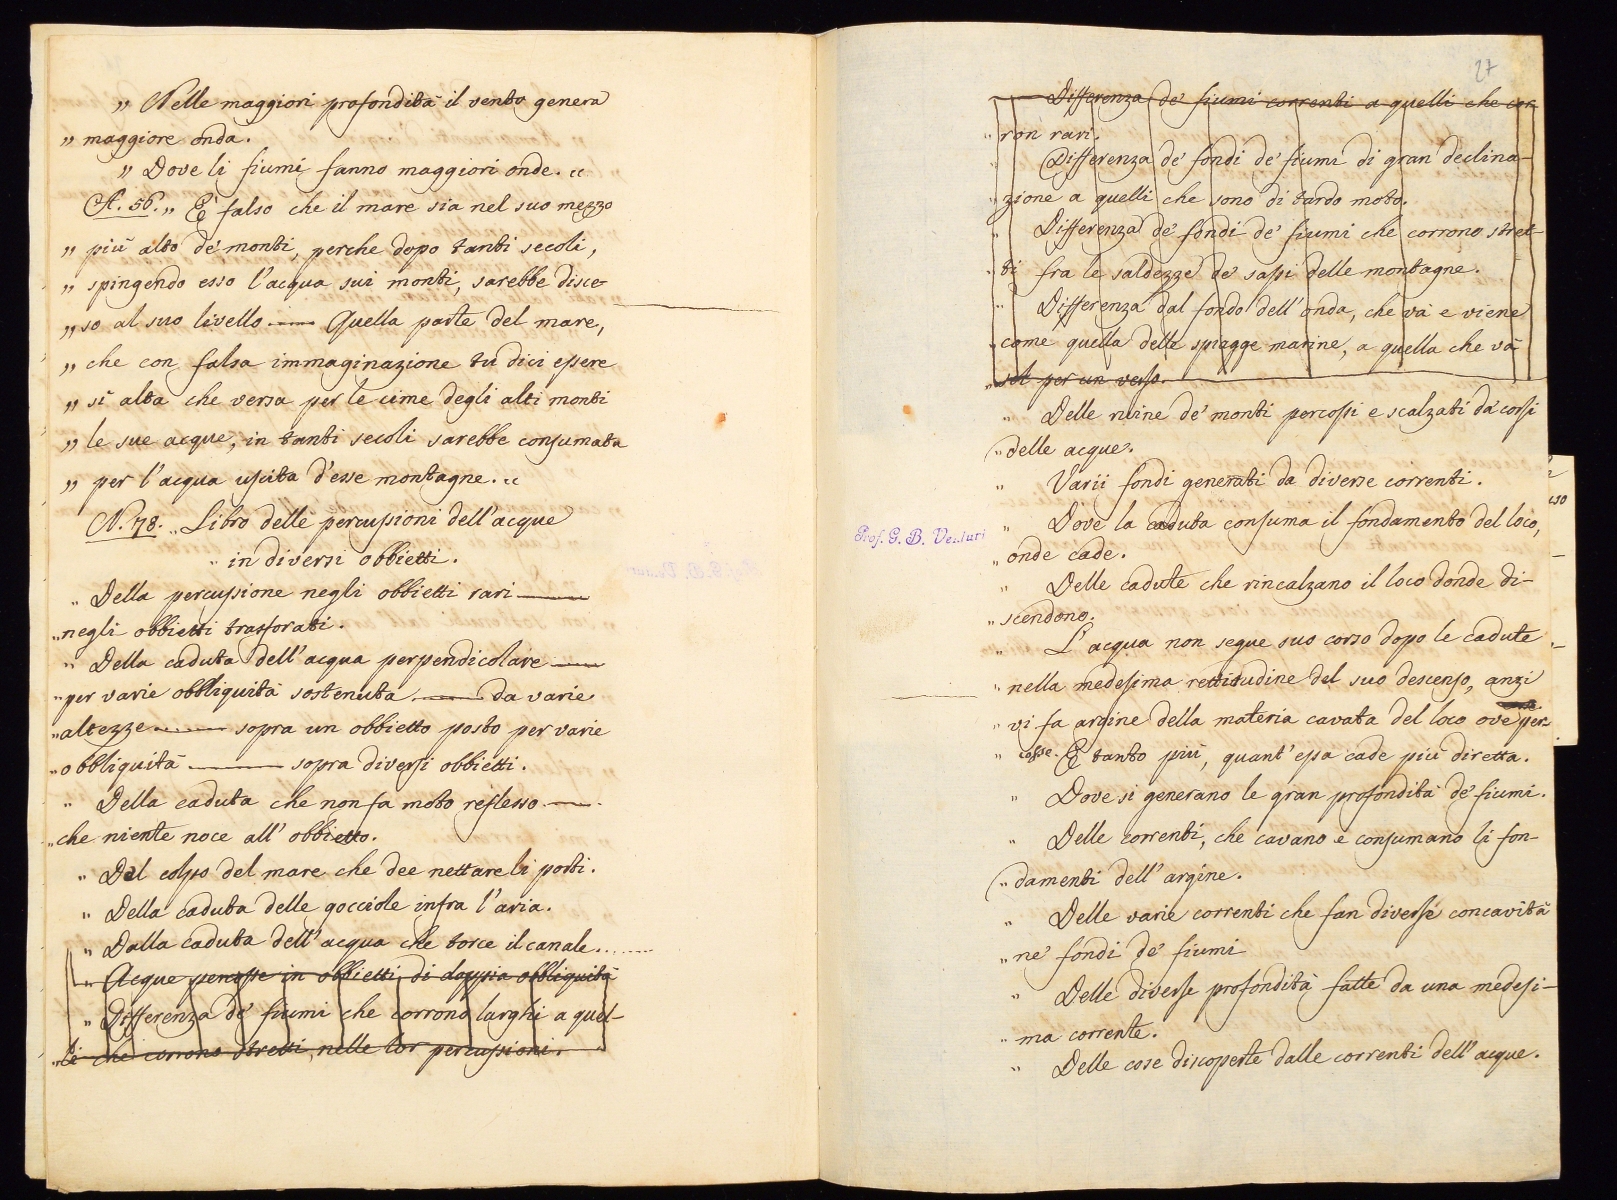 „ Nelle maggiori profondità il vento genera
„ maggiore onda.
„ Dove li fiumi fanno maggiori onde. „
A. 56. „ È falso che il mare sia nel suo mezzo
„ più alto de' monti, perche dopo tanti secoli,
„ spingendo esso l'acqua sui monti, sarebbe disce-
„ so al suo livello —— Quella parte del mare,
„ che con falsa immaginazione tu dici essere
„ sì alta che versa per le cime degli alti monti
„ le sue acque, in tanti secoli sarebbe consumata
„ per l'acqua uscita d'esse montagne. „
N. 78. „ Libro delle percussioni dell'acque
„ in diversi obbietti.
„ Della percussione negli obbietti rari ——
„ negli obbietti trasforati.
„ Della caduta dell'acqua perpendicolare ——
„ per varie obbliquità sostenuta —— da varie
„ altezze —— sopra un obbietto posto per varie
„ obbliquità —— sopra diversi obbietti.
„ Della caduta che non fa moto reflesso ——
„ che niente noce all'obbietto.
„ Del colpo del mare che dee nettare li porti.
„ Della caduta delle gocciole infra l'aria.
„ Dalla caduta dell'acqua che torce il canale......
„ Acque percosse in obbietti di doppia obbliquità
„ Differenza de' fiumi che corrono larghi a quel-
„ li che corrono stretti nelle lor percussioni.
27
Differenza de' fiumi correnti a quelli che cor-
„ ron rari.
„ Differenza de' fondi de' fiumi di gran declina-
„ zione a quelli che sono di tardo moto.
„ Differenza de' fondi de' fiumi che corrono stret-
„ ti fra le saldezze de' sassi delle montagne.
„ Differenza dal fondo dell'onda, che và e viene
„ come quella delle spiagge marine, a quella che và
„ sol per un verso.
„ Delle ruine de' monti percossi e scalzati da' corsi
„ delle acque.
„ Varii fondi generati da diverse correnti.
„ Dove la caduta consuma il fondamento del loco,
„ onde cade.
„ Delle cadute che rincalzano il loco donde di-
„ scendono.
„ L'acqua non segue suo corso dopo le cadute
„ nella medesima rettitudine del suo descenso, anzi
„ vi fa argine della materia cavata del loco ove per-
„ cosse. E tanto più, quant'essa cade più diretta.
„ Dove si generano le gran profondità de' fiumi.
„ Delle correnti, che cavano e consumano li fon-
„ damenti dell'argine.
„ Delle varie correnti che fan diverse concavità
„ ne' fondi de' fiumi
„ Delle diverse profondità fatte da una medesi-
„ ma corrente.
„ Delle cose discoperte dalle correnti dell'acque.
Prof. G. B. Venturi